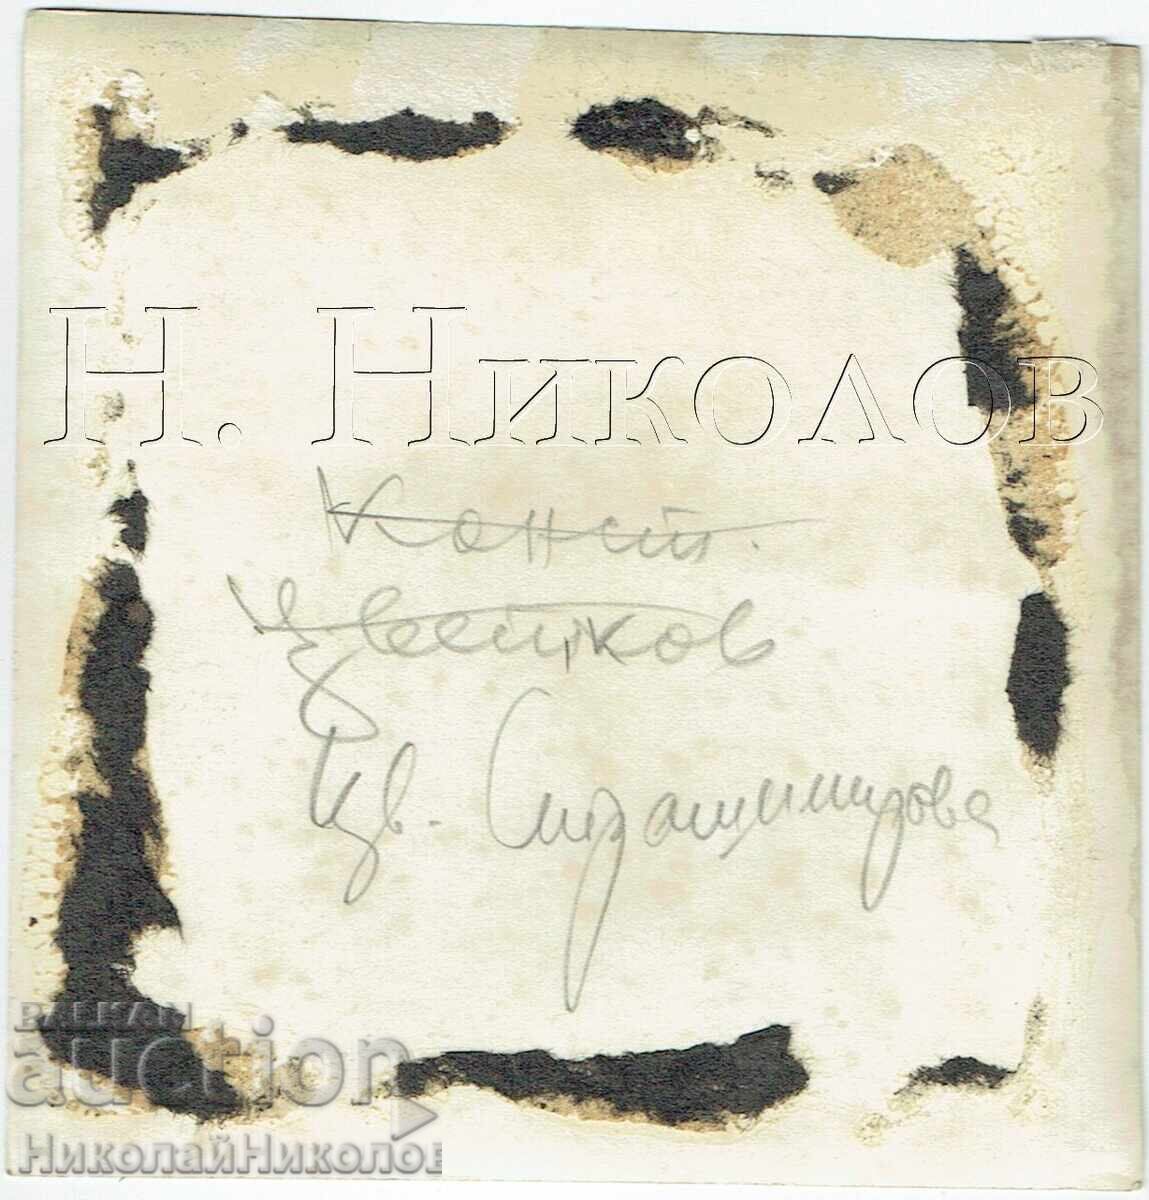 Н. Николов
Конст.
Цветков
Цв. Страшимирова
BALKAN
auction
НиколайНиколов